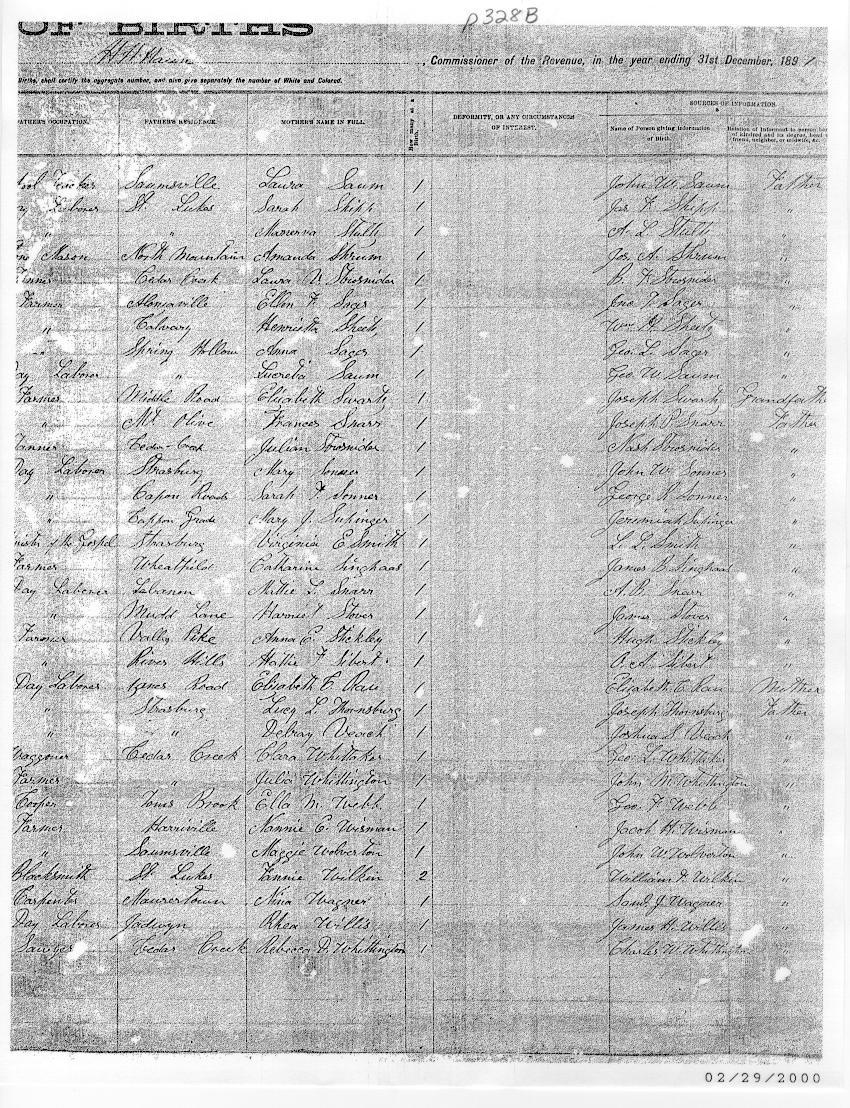 p328B
OF BIRTHS
Commissioner of the Revenue, in the year ending 31st December, 189
Births, shall certify the aggregate number, and also give separately the number of White and Colored.
FATHER'S OCCUPATION. FATHER'S RESIDENCE. MOTHER'S NAME IN FULL. How many at a Birth. DEFORMITY, OR ANY CIRCUMSTANCES OF INTEREST. SOURCES OF INFORMATION.
Name of Person giving information of Birth.
Saumsville Laura Saum 1 John W. Saum Father
Laborer St. Lukes Sarah Shipp 1 Jos F. Shipp "
" " Stultz 1 A. L. Stultz "
Mason North Mountain Amanda Shrum 1 Jos. A. Shrum "
Cedar Creek Laura V. 1 "
Farmer Ellen F. Sager 1 Jno. F. Sager "
" Calvary Henrietta Sheetz 1 Wm H. Sheetz "
" Spring Hollow Anna Sager 1 Geo. L. Sager "
Day Laborer " Lucretia Saum 1 Geo W. Saum "
Farmer Middle Road Elizabeth Swartz 1 Joseph Swartz Grandfather
" Mt Olive Frances Snarr 1 Joseph P. Snarr Father
Tanner Cedar Creek Julian 1 "
Day Laborer Strasburg Mary Sonner 1 John W. Sonner "
" Capon Road Sarah F. Sonner 1 George R. Sonner "
" Cappon Grade Mary J. Supinger 1 Jeremiah Supinger "
Minister of the Gospel Strasburg Virginia E Smith 1 L. L. Smith "
Farmer Wheatfield Catharine Singhaas 1 James B. Singhaas "
Day Laborer Lebanon Mittie L. Snarr 1 A. B. Snarr "
" Mudd Lane Harriet Stover 1 James Stover "
Farmer Vally Pike Anna E. Stickley 1 Hugh Stickley "
" River Hills Hattie F Sibert 1 A. Sibert "
Day Laborer Road Elizabeth C. Rau 1 Elizabeth C. Rau Mother
" Strasburg Lucy L. Thornsburg 1 Joseph Thornsburg Father
" " Delray Veach 1 Joshua S. Veach "
Waggoner Cedar Creek Clara Whittaker 1 Geo. L. Whittaker "
Farmer " Julia Whittington 1 John M. Whittington "
Cooper Toms Brook Ella M. Webb 1 Geo. F. Webb "
Farmer Harriville Nannie C. Wisman 1 Jacob H. Wisman "
" Saumsville Maggie Wolverton 1 John W. Wolverton "
Blacksmith St Lukes Fannie Wilkin 2 William F. Wilkin "
Carpenter Maurertown Nina Wagner 1 Saml J. Wagner "
Day Laborer Jadwyn Rhea Willis 1 James H. Willis "
Sawyer Cedar Creek Rebecca D. Whittington 1 Charles W. Whittington "
02/29/2000